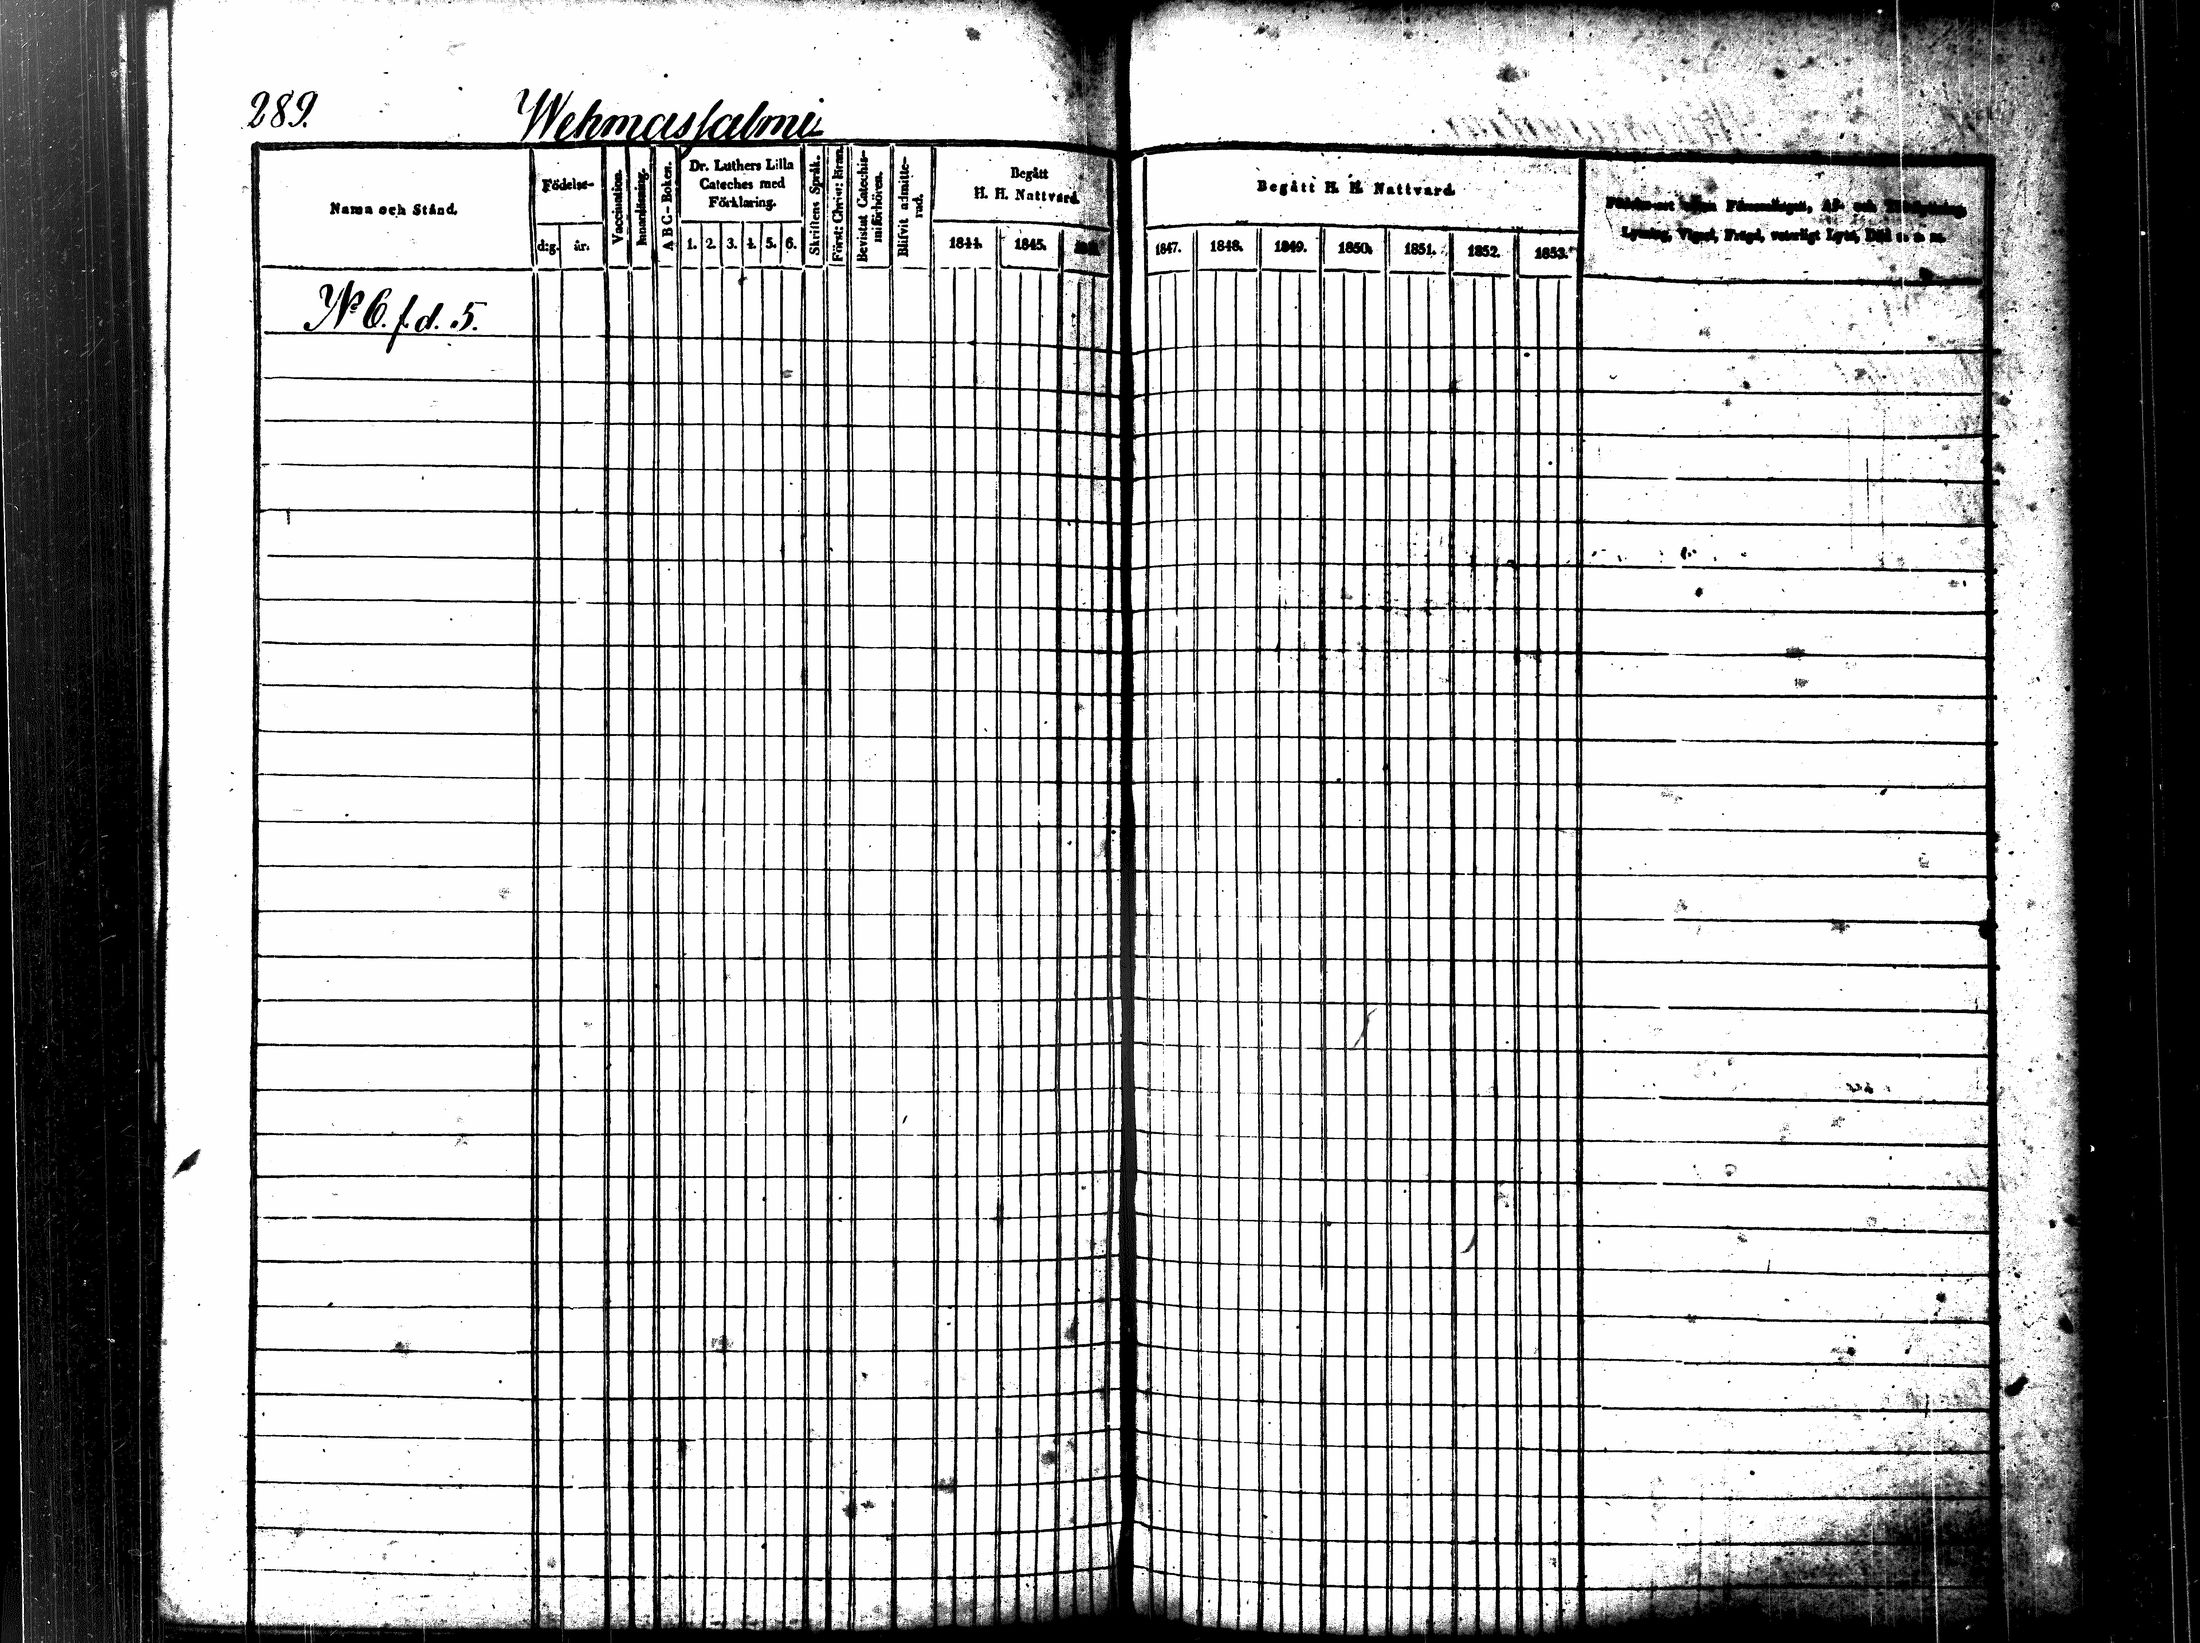 289.
Wehmasjalmi
Namn och Stånd.
Födelse-
d:g. år.
Vaccination.
Innanläsning.
A B C - Boken.
Dr. Luthers Lilla
Cateches med
Förklaring.
1. 2. 3. 4. 5. 6.
Skriftens Språk.
Först: Christ: Kran.
Bevistat Catechis-
miförhören.
Blifvit admitte-
rad.
Begått
H. H. Nattvard.
1844. 1845.
Begått H. H. Nattvard.
1847. 1848. 1849. 1850. 1851. 1852. 1853.
Af- och
Lysning, Vigsel, Frägd, Lyte, Död
No 6. f. d. 5.